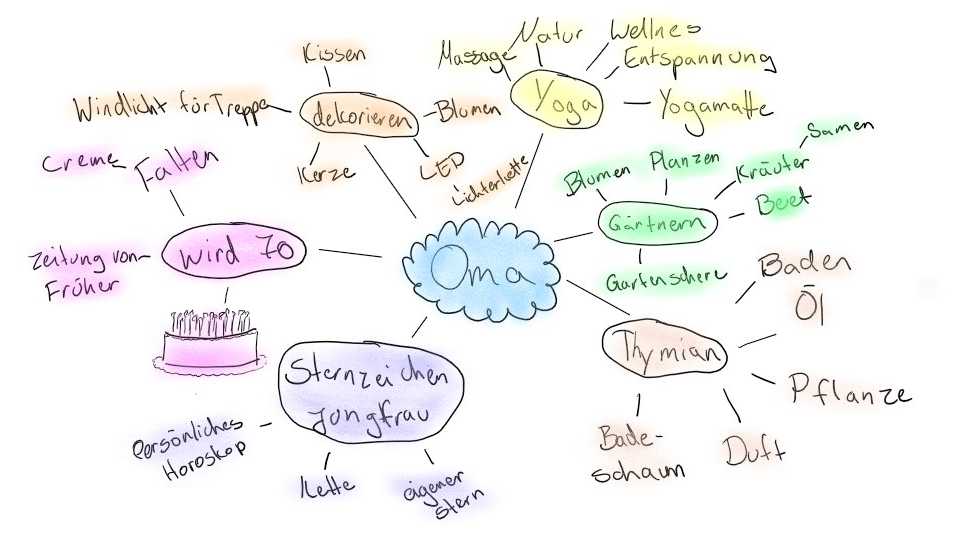 Kissen
Windlicht für Treppe
dekorieren
Blumen
Kerze
LED
Lichterkette
Massage
Natur
Wellnes
Entspannung
Yoga
Yogamatte
Creme
Falten
wird 70
Zeitung von
Früher
Oma
Blumen
Planzen
Kräuter
Samen
Gärtnern
Beet
Gartenschere
Thymian
Baden
Öl
Pflanze
Duft
Bade-
schaum
Sternzeichen
Jungfrau
Persönliches
Horoskop
Kette
eigener
Stern